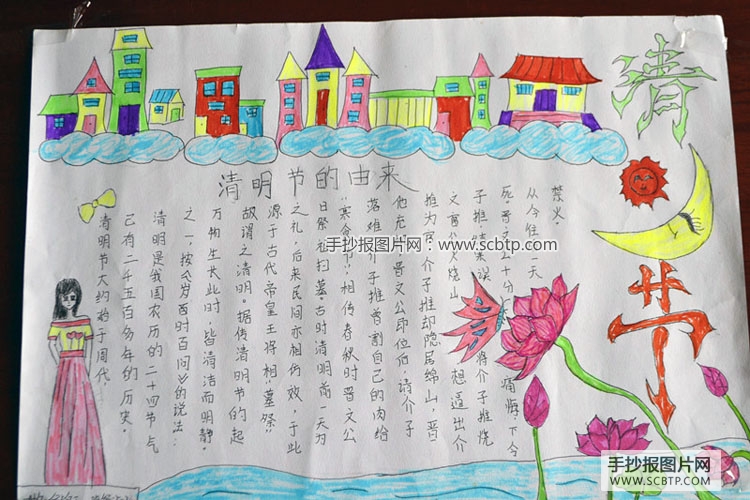 清
节
清明节的由来
清明节大约始于周代。
已有二千五百多年的历史。
清明是我国农历的二十四节气
之一，按《岁百时百问》的说法：
万物生长此时，皆清洁而明静。
故谓之清明。据传清明节的起
源于古代帝王将相“墓祭”
之礼，后来民间亦相仿效，于此
日祭祖扫墓。古时清明前一天为
“寒食节”相传春秋时晋文公
落难，介子推曾割自己的肉给
他充 晋文公即位后，请介子
推为 介子推却隐居绵山，晋
文 火烧山 想逼出介
子推 结果误 将介子推烧
死。晋文公十分 痛悔，下令
从今往 一天
禁火。
手抄报图片网：www.scbtp.com
手抄报图片网
WWW.SCBTP.COM